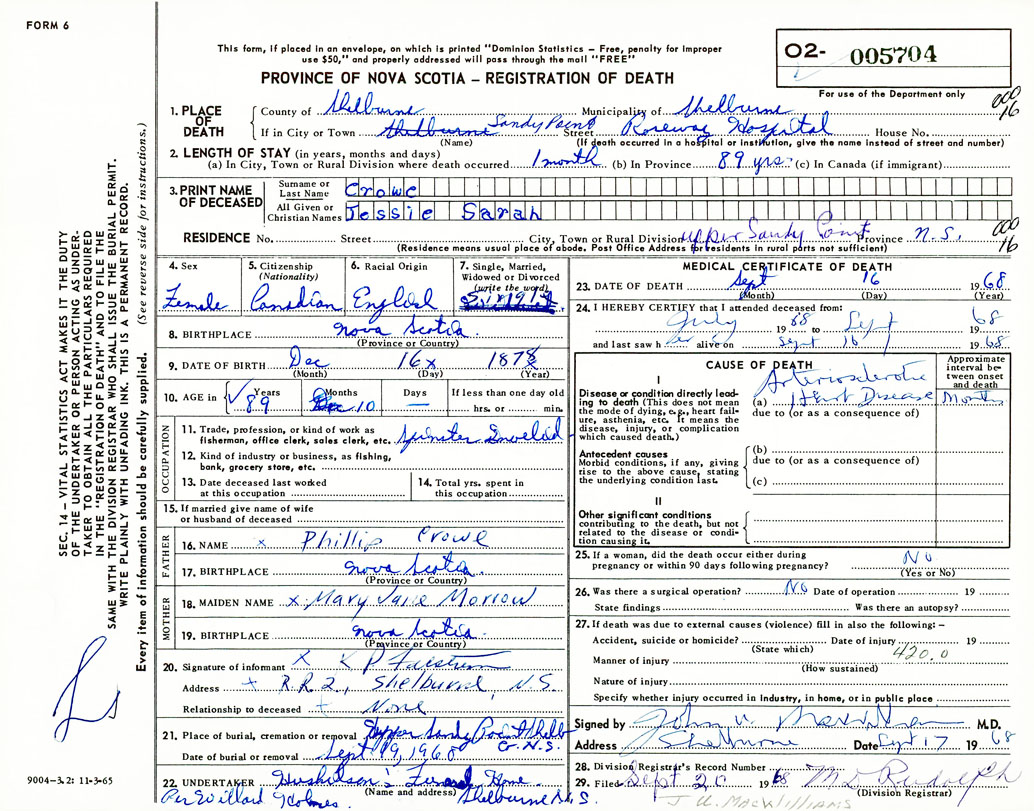 FORM 6
This form, if placed in an envelope, on which is printed "Dominion Statistics – Free, penalty for improper
use $50," and properly addressed will pass through the mail "FREE"
O2- 005704
PROVINCE OF NOVA SCOTIA – REGISTRATION OF DEATH
For use of the Department only
1. PLACE OF DEATH
County of Shelburne Municipality of Shelburne
If in City or Town Shelburne Sandy Point Street Roseway Hospital House No.
(Name) (If death occurred in a hospital or institution, give the name instead of street and number)
000
16
2. LENGTH OF STAY (in years, months and days)
(a) In City, Town or Rural Division where death occurred 1 month (b) In Province 89 yrs (c) In Canada (if immigrant)
3. PRINT NAME OF DECEASED
Surname or Last Name Crowe
All Given or Christian Names Jessie Sarah
RESIDENCE No. Street City, Town or Rural Division Upper Sandy Point Province N.S.
(Residence means usual place of abode. Post Office Address for residents in rural parts not sufficient)
000
16
4. Sex Female
5. Citizenship (Nationality) Canadian
6. Racial Origin English
7. Single, Married, Widowed or Divorced (write the word) Single
8. BIRTHPLACE Nova Scotia.
(Province or Country)
9. DATE OF BIRTH Dec 16 x 1878
(Month) (Day) (Year)
10. AGE in Years 89 Months 10 Days — If less than one day old
hrs. or min.
OCCUPATION
11. Trade, profession, or kind of work as
fisherman, office clerk, sales clerk, etc. Spinster
12. Kind of industry or business, as fishing,
bank, grocery store, etc.
13. Date deceased last worked
at this occupation
14. Total yrs. spent in
this occupation
15. If married give name of wife
or husband of deceased
FATHER
16. NAME x Phillip Crowe
17. BIRTHPLACE Nova Scotia.
(Province or Country)
MOTHER
18. MAIDEN NAME x Mary Jane Morrow
19. BIRTHPLACE Nova Scotia.
(Province or Country)
20. Signature of informant x
Address R.R.2, Shelburne, N.S.
Relationship to deceased None
21. Place of burial, cremation or removal Upper Sandy Point Shelb
Co. N.S.
Date of burial or removal Sept 19, 1968
22. UNDERTAKER Funeral Home
(Name and address) Shelburne N.S.
Per Willard Holmes
MEDICAL CERTIFICATE OF DEATH
23. DATE OF DEATH Sept 16 1968
(Month) (Day) (Year)
24. I HEREBY CERTIFY that I attended deceased from:
July 1968 to Sept 1968
and last saw her alive on Sept 16 1968
CAUSE OF DEATH
Approximate interval between onset and death
I
Disease or condition directly leading to death (This does not mean
the mode of dying, e.g., heart failure, asthenia, etc. It means the
disease, injury, or complication
which caused death.)
(a) Arteriosclerotic Heart Disease Months
due to (or as a consequence of)
Antecedent causes
Morbid conditions, if any, giving
rise to the above cause, stating
the underlying condition last.
(b)
due to (or as a consequence of)
(c)
II
Other significant conditions
contributing to the death, but not
related to the disease or condition causing it.
25. If a woman, did the death occur either during
pregnancy or within 90 days following pregnancy? No
(Yes or No)
26. Was there a surgical operation? No Date of operation 19
State findings Was there an autopsy?
27. If death was due to external causes (violence) fill in also the following: –
Accident, suicide or homicide? Date of injury 19
(State which) 420.0
Manner of injury
(How sustained)
Nature of injury
Specify whether injury occurred in Industry, in home, or in public place
Signed by John M.D.
Address Shelburne Date Sept 17 1968
28. Division Registrar's Record Number
29. Filed Sept 20 1968 M D Rudolph
(Division Registrar)
J. A. MacWilliams
SEC. 14 – VITAL STATISTICS ACT MAKES IT THE DUTY
OF THE UNDERTAKER OR PERSON ACTING AS UNDER-
TAKER TO OBTAIN ALL THE PARTICULARS REQUIRED
IN THE "REGISTRATION OF DEATH" AND TO FILE THE
SAME WITH THE DIVISION REGISTRAR WHO SHALL ISSUE THE BURIAL PERMIT.
WRITE PLAINLY WITH UNFADING INK. THIS IS A PERMANENT RECORD.
Every item of information should be carefully supplied. (See reverse side for instructions.)
9004–3.2: 11-3-65